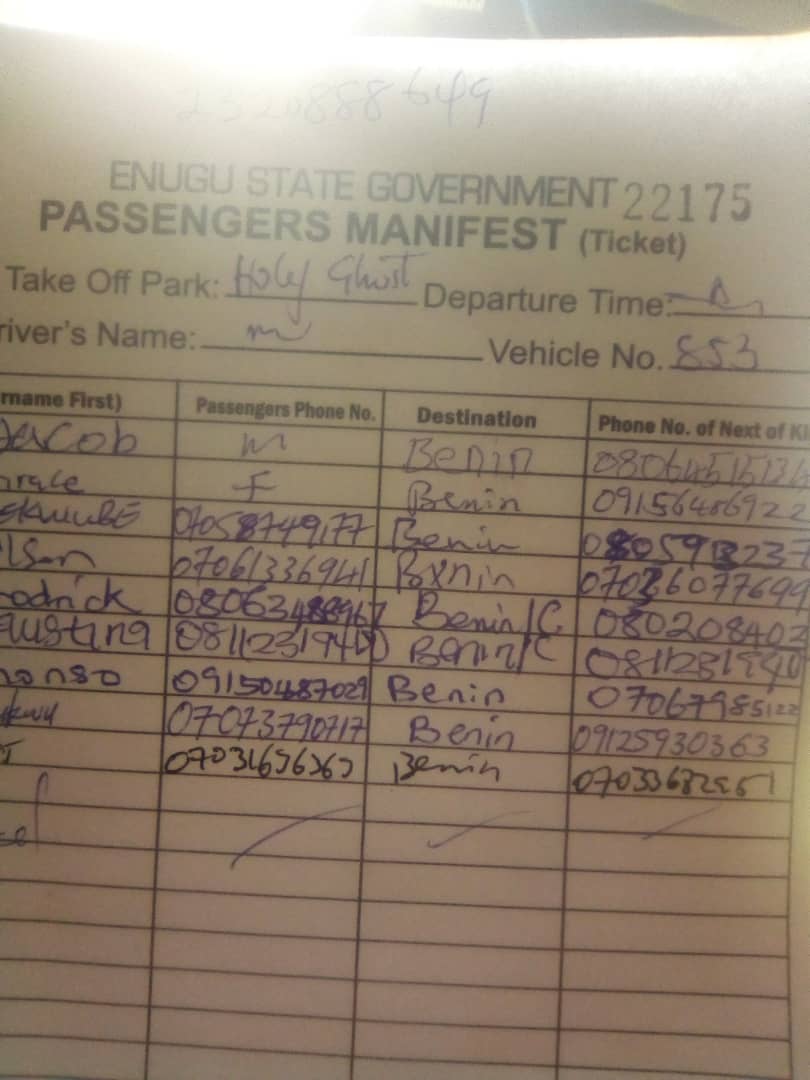 2320888649
ENUGU STATE GOVERNMENT 22175
PASSENGERS MANIFEST (Ticket)
Take Off Park: Holy Ghost Departure Time:
river's Name: Vehicle No. 853
rname First) Passengers Phone No. Destination Phone No. of Next of Ki
Jacob M Benin 0806451513
race F Benin 0915648692
07058749177 Benin
lson 07061336941 Benin 07036077699
odrick Benin/C 080208402
austina 08112319400 Benin/C 08112319400
nonso 09150487029 Benin 07067985122
07073790717 Benin 09125930363
Benin